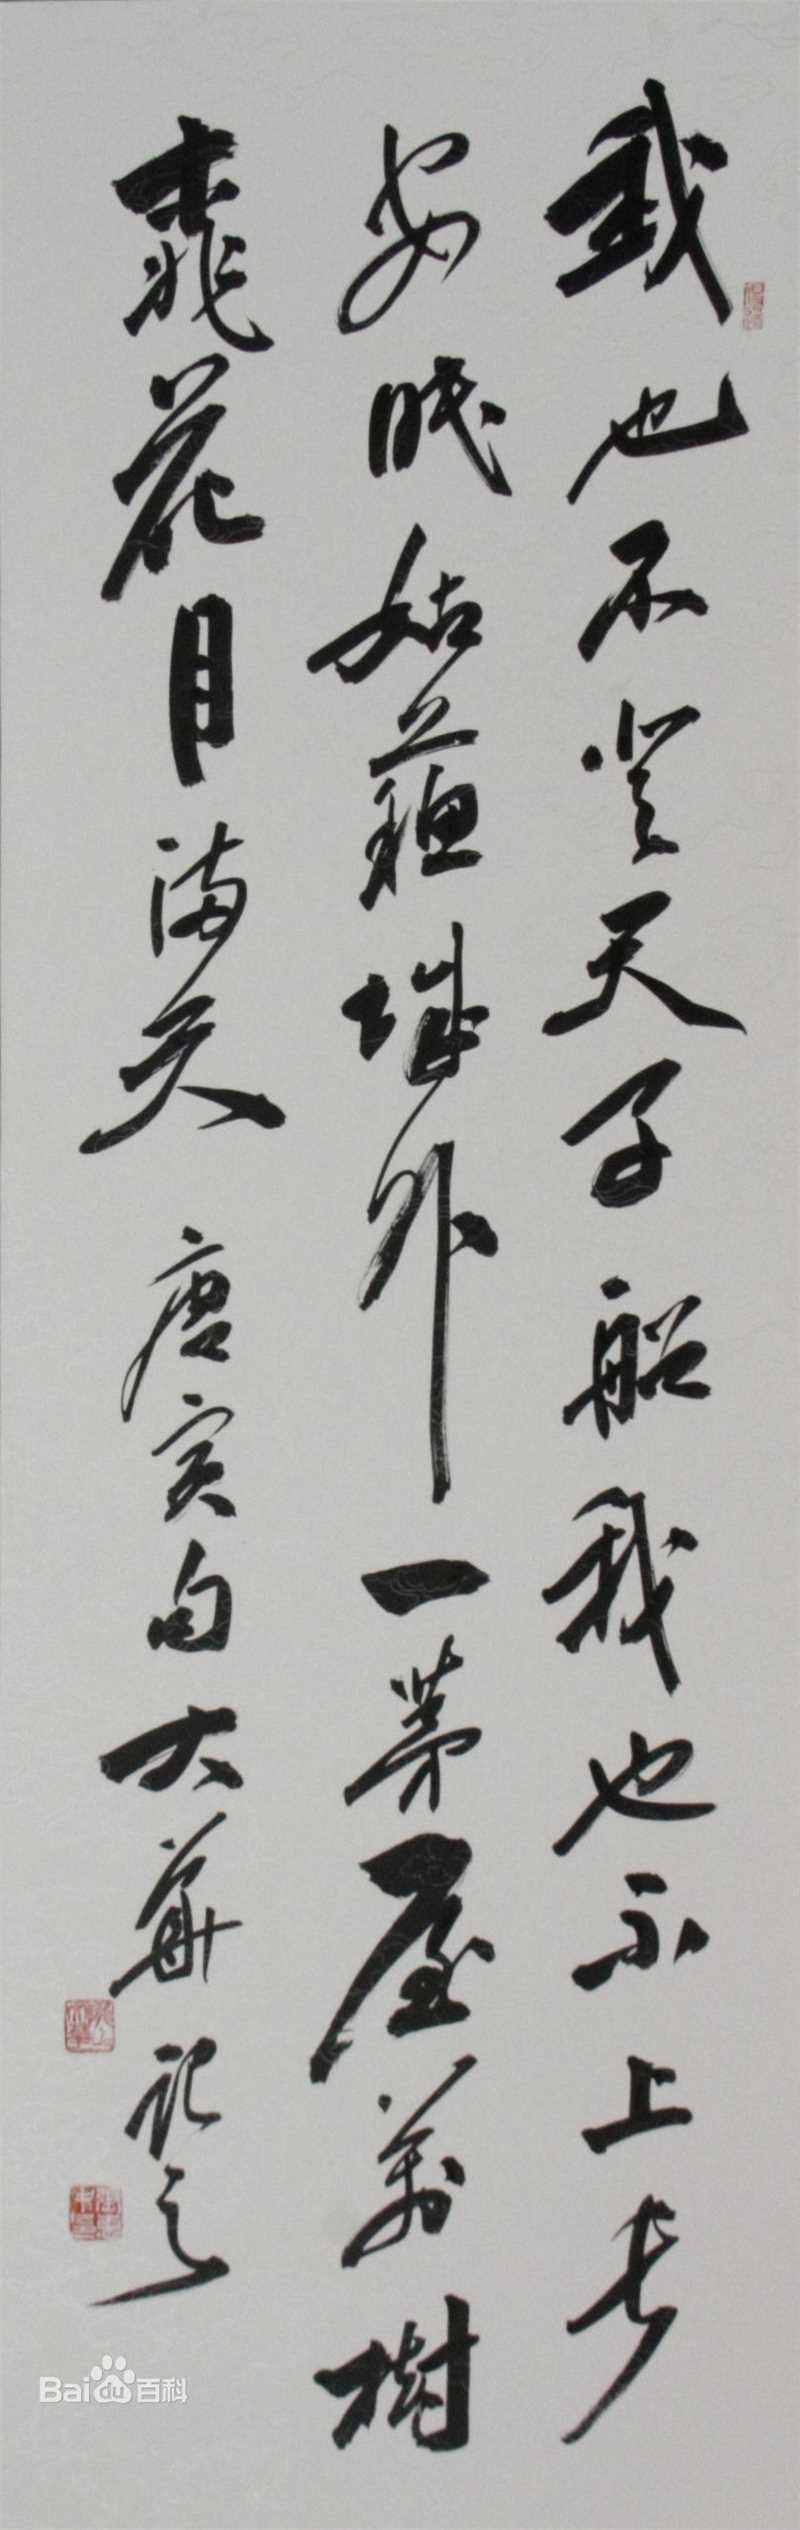 我也不登天子船我也不上长
安眠姑蘇城外一茅屋萬樹
桃花月满天 唐寅句大華记之
Baidu百科